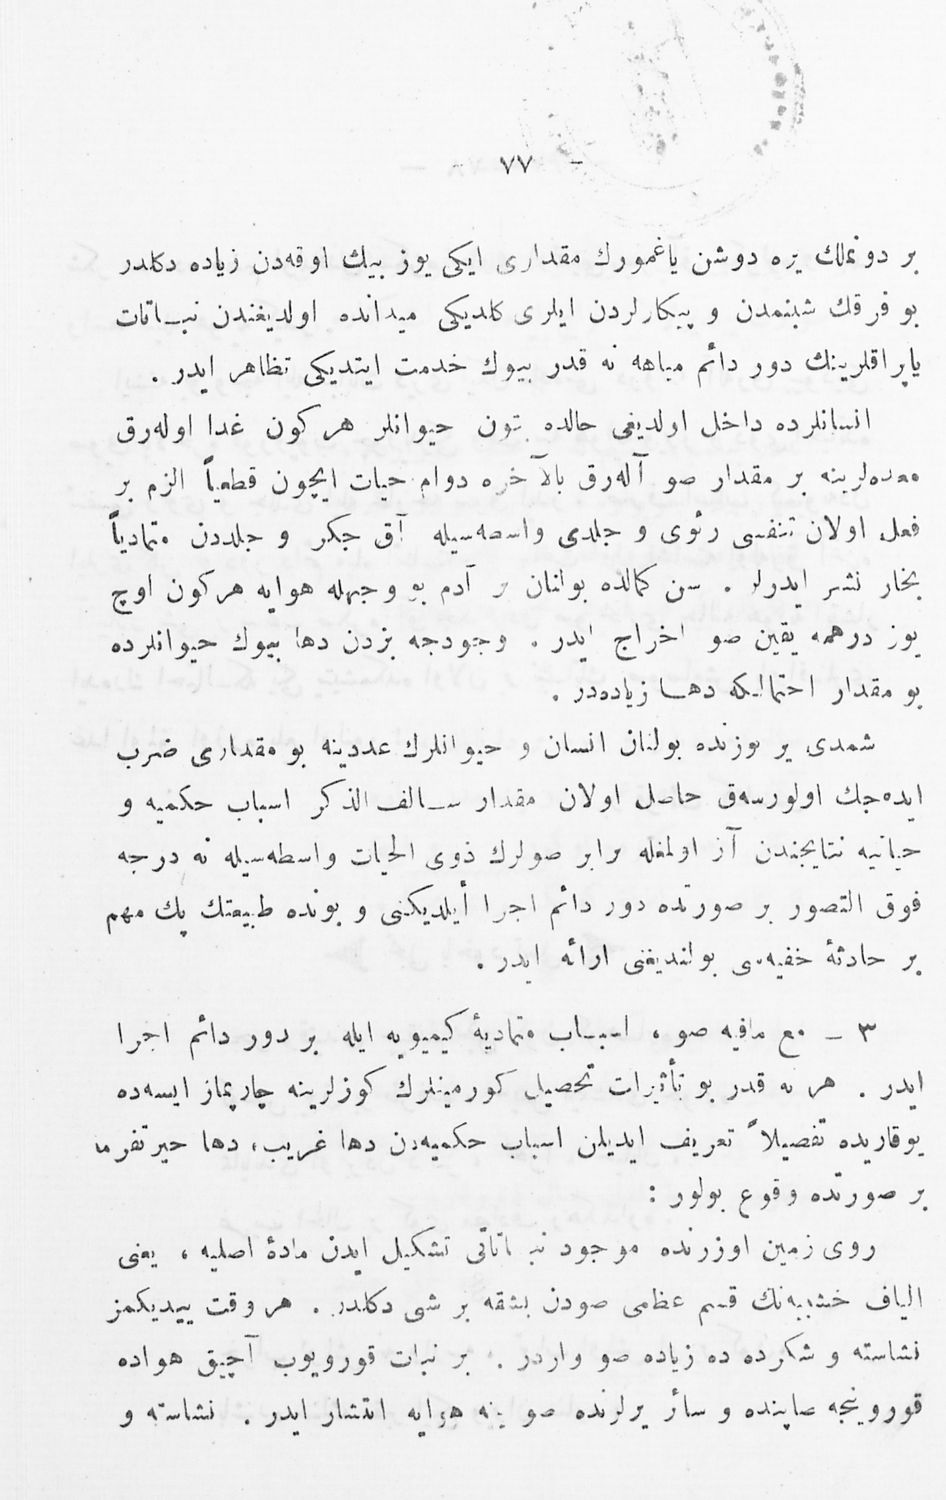 - ٧٧ -
بر دونملك يره دوشن ياغمورك مقدارى ايكى يوز بيك اوقه‌دن زياده دكلدر
بو فرقك شبنمدن و پيكارلردن ايلرى كلديكى ميدانده اولديغندن نبـاتات
ياپراقلرينك دور دائم مياهه نه قدر بيوك خدمت ايتديكى تظاهر ايدر .
انسانلرده داخل اولديغى حالده بتون حيوانلر هركون غدا اوله‌رق
معده‌لرينه بر مقدار صو آله‌رق بالآخره دوام حيات ايچون قطعياً الزم بر
فعل اولان تنفسى رئوى و جلدى واسطه‌سيله آق جكر و جلددن متمادياً
بخار نشر ايدرلر . سن كمالده بولنان بر آدم بو وجهله هوايه هركون اوچ
يوز درهمه يقين صو اخراج ايدر . وجودجه بزدن دها بيوك حيوانلرده
بو مقدار احتمالكه دهـا زياده‌در .
شمدى ير يوزنده بولنان انسان و حيوانلرك عددينه بو مقدارى ضرب
ايده‌جك اولورسه‌ق حاصل اولان مقدار سـالف الذكر اسباب حكميه و
حياتيه نتايجندن آز اولمغله برابر صولرك ذوى الحيات واسطه‌سيله نه درجه
فوق التصور بر صورتده دور دائم اجرا أيلديكنى و بونده طبيعتك پك مهم
بر حادثهٔ خفيه‌سى بولنديغنى ارائه ايدر .
٣ ـ مع مافيه صو ، اسبـاب متماديهٔ كيميويه ايله بر دور دائم اجرا
ايدر . هر نه قدر بو تأثيرات تحصيل كورمينلرك كوزلرينه چارپماز ايسه‌ده
يوقاريده تفصيلاً تعريف ايديلن اسباب حكميه‌دن دها غريب، دها حيرتفرما
بر صورتده وقوع بولور :
روى زمين اوزرنده موجود نبـاتاتى تشكيل ايدن مادهٔ اصليه ، يعنى
الياف خشبيه‌نك قسم عظمى صودن بشقه بر شى دكلدر . هر وقت ييديكمز
نشاسته و شكرده ده زياده صو واردر . بر نبات قورويوب آچيق هواده
قوروينجه صاپنده و سائر يرلرنده صو ينه هوايه انتشار ايدر . نشاسته و